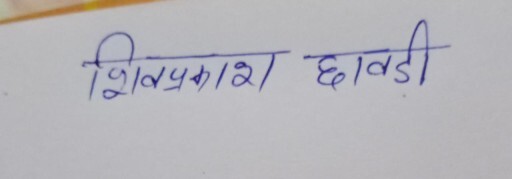 शिवप्रकाश छावडी